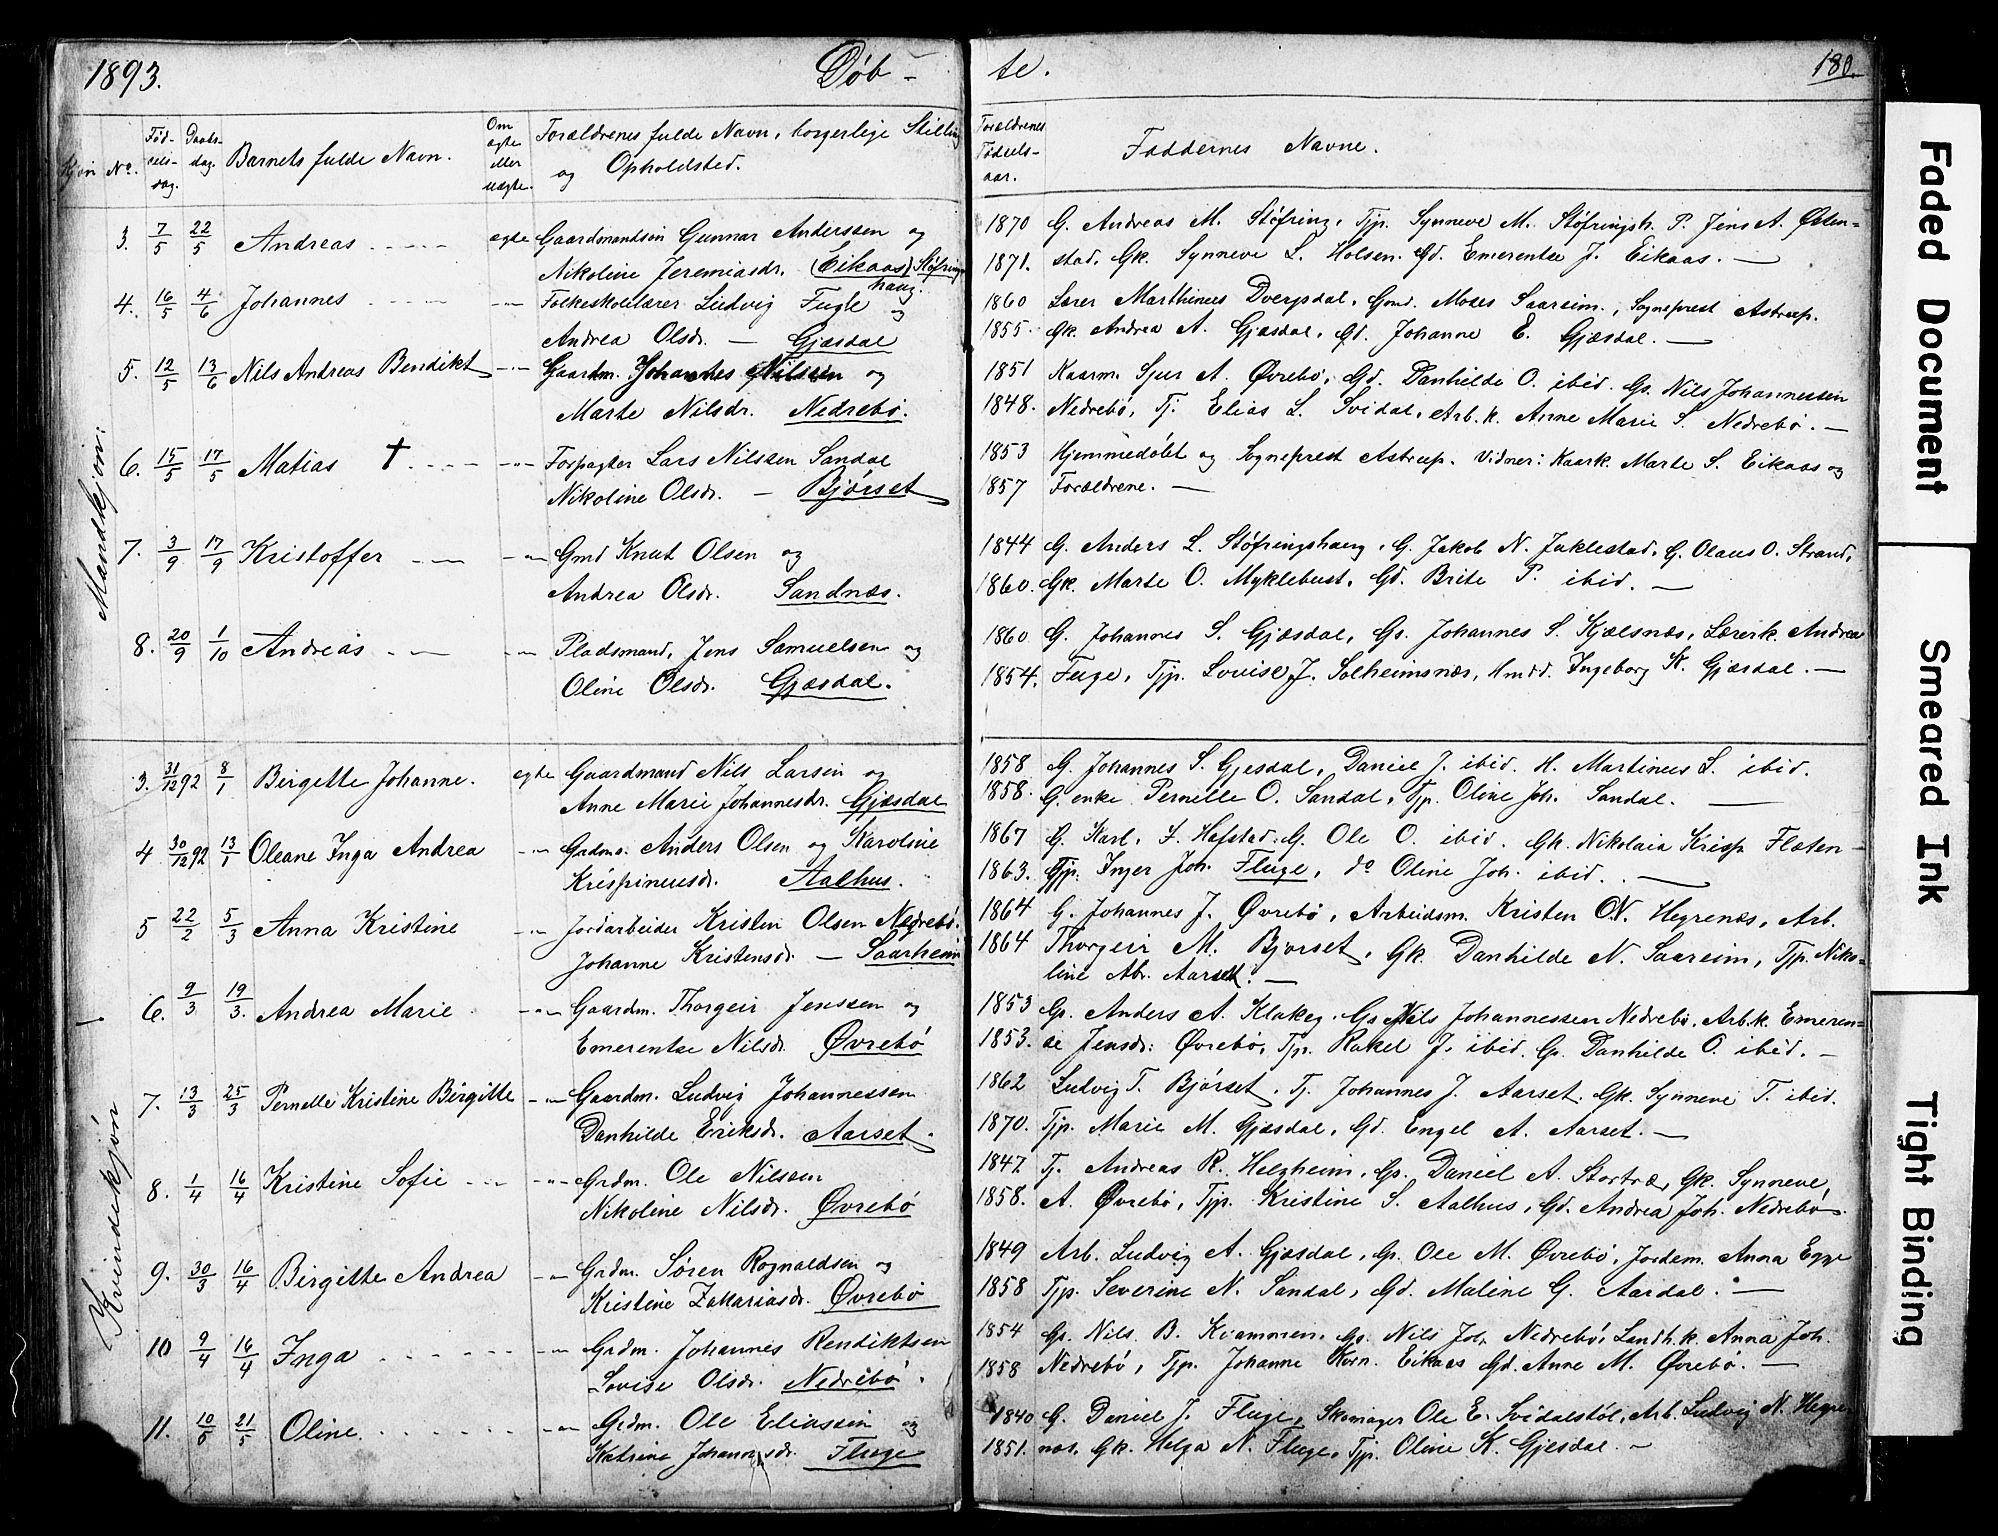 1893. Døb- te. 180.
Kjøn No. Fødselsdag. Daabsdag. Barnets fulde Navn. Om ægte eller uægte. Forældrenes fulde Navn, borgerlige Stilling og Opholdsted. Forældrenes Fødselsaar. Faddernes Navne.
Mandkjøn:
3. 7/5 22/5 Andreas ægte Gaardmandsøn Gunnar Anderssen og 1870 G. Andreas M. Støfring, Tjp. Synneve M. Støfringsh. P. Jens A. Østen=
Nikoline Jeremiasdr. (Eikaas) Støfringshaug. 1871. stad, Gk. Synneve L. Holsen. Gd. Emerentse J. Eikaas. —
4. 16/5 4/6 Johannes -"- Folkeskolelærer Ludvig Fugle og 1860 Lærer Marthinus Dvergsdal, Gmd. Moses Saareim, Sogneprest Astrup.
Andrea Olsdr. — Gjæsdal 1855. Gk. Andrea A. Gjæsdal, Gd. Johanne E. Gjæsdal. —
5. 12/5 13/6 Nils Andreas Bendikt -"- Gaardm. Johannes Nilsen og 1851 Kaarm. Sjur A. Øvrebø, Gd. Danhilde O. ibid. Gs. Nils Johannessen
Marte Nilsdr. Nedrebø. 1848. Nedrebø, Tj. Elias L. Svidal, Arb.k. Anne Marie S. Nedrebø. —
6. 15/5 17/5 Matias † -"- Forpagter Lars Nilssen Sandal 1853 Hjemmedøbt og Sogneprest Astrup. Vidner: Kaark. Marte S. Eikaas og
Nikoline Olsdr. — Bjørset 1857 Forældrene. —
7. 3/9 17/9 Kristoffer -"- Gmd Knut Olsen og 1844 G. Anders L. Støfringshaug, G. Jakob N. Juklestad, G. Olaus O. Strand,
Andrea Olsdr. Sandnæs. 1860. Gk. Marte O. Myklebust, Gd. Brite P. ibid. —
8. 20/9 1/10 Andreas -"- Pladsmand, Jens Samuelsen og 1860 G. Johannes S. Gjæsdal, Gs. Johannes S. Kjælsnæs, Lærerk. Andrea
Oline Olsdr. Gjæsdal. 1854. Fuge, Tjp. Lovise J. Solheimsnæs, Hmdd. Ingeborg K. Gjæsdal. —
Kvindekjøn
3. 31/12 92 8/1 Birgitte Johanne. ægte Gaardmand Nils Larsen og 1858 G. Johannes S. Gjesdal, Daniel J. ibid. H. Martinus L. ibid.
Anne Marie Johannesdr. Gjæsdal 1858. G. enke Pernille O. Sandal, Tjp. Oline Joh. Sandal. —
4 30/12 92 13/1 Oleane Inga Andrea -"- Grdm. Anders Olsen og Karoline 1867 G. Karl. J. Hafstad. G. Ole O. ibid. Gk. Nikolaia Krisp. Flæten
Krispinusdr. Aalhus. 1863. Tjp. Inger Joh. Fluge, do Oline Joh. ibid. —
5 22/2 5/3 Anna Kristine -"- Jordarbeider Kristen Olsen Nedrebø. 1864 G. Johannes J. Øvrebø, Arbeidsm. Kristen O.N. Hegrenæs, Arb.
Johanne Kristensdr. — Saarheim 1864 Thorgeir M. Bjørset, Gk. Danhilde N. Saareim, Tjp. Niko=
line Abr. Aarset. —
6. 9/3 19/3. Andrea Marie -"- Gaardm. Thorgeir Jenssen og 1853 Gs. Anders A. Klakeg, Gs. Nils Johannessen Nedrebø, Arb.k. Emeren=
Emerentse Nilsdr. Øvrebø 1853. se Jensdr. Øvrebø, Tjp. Rakel J. ibid. Gs. Danhilde O. ibid. —
7. 13/3 25/3 Pernelle Kristine Birgitte -"- Gaardm. Ludvig Johannessen 1862 Ludvig T. Bjørset, Tj. Johannes J. Aarset. Gk. Synneve T. ibid.
Danhilde Eriksdr. Aarset. 1870. Tjp. Marie M. Gjæsdal, Gd. Engel A. Aarset. —
8. 1/4 16/4 Kristine Sofie -"- Grdm. Ole Nilsen 1847 Tj. Andreas R. Helgheim, Gs. Daniel A. Stortræ, Gk. Synneve
Nikoline Nilsdr. Øvrebø 1858. A. Øvrebø, Tjp. Kristine S. Aalhus, Gd. Andrea Joh. Nedrebø.
9. 30/3 16/4 Birgitte Andrea -"- Grdm. Søren Rognaldsen og 1849 Arb. Ludvig A. Gjæsdal, Gs. Ole M. Øvrebø, Jordem. Anna Egge
Kristine Zakariasdr. Øvrebø 1858 Tjp. Severine N. Sandal, Gd. Maline G. Aardal. —
10 9/4 16/4 Inga -"- Grdm. Johannes Bendiktsen 1854 Gs. Nils B. Kvammen. Gs. Nils Joh. Nedrebø, Landh.k. Anna Joh.
Lovise Olsdr. Nedrebø. 1858 Nedrebø, Tjp. Johanne Korn. Eikaas Gd. Anne M. Øvrebø. —
11. 10/5 21/5 Oline -"- Grdm. Ole Eliassen og 1840 G. Daniel J. Fluge, Skomager Ole E. Svidalstøl, Arb. Ludvig N. Hegre
Katrine Johannesdr. Fluge 1851. næs. Gk. Helga N. Fluge, Tjp. Oline K. Gjesdal. —
Faded Document
Smeared Ink
Tight Binding